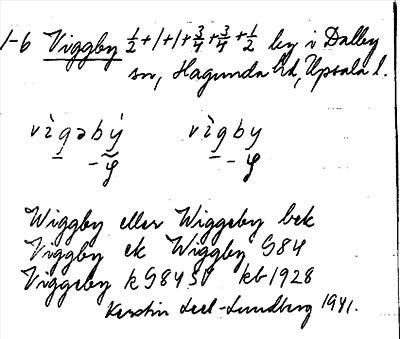 1-6 Viggby ½+1+1+¾+¾+½ by i Dalby
sn, Hagunda hd, Upsala l.
vìgəbý vìgby
Wiggby eller Wiggeby bek
Viggby ek Wiggby G84
Viggeby k G84SV kb 1928
Kerstin Leel-Lundberg 1941.